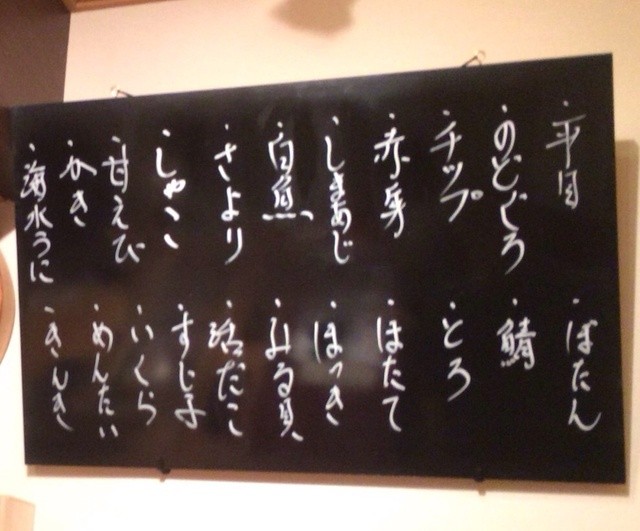 ・平目
・のどぐろ
・チップ
・赤身
・しまあじ
・白魚
・さより
・しゃこ
・甘えび
・かき
・海水うに
・ぼたん
・鯖
・とろ
・ほたて
・ほっき
・みる貝
・活だこ
・すじ子
・いくら
・めんたい
・きんき